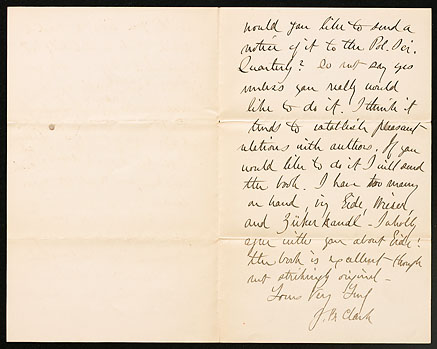 would you like to send a
notice of it to the Pol. Sci.
Quarterly? Do not say yes
unless you really would
like to do it. I think it
tends to establish pleasant
relations with authors. If you
would like to do it I will send
the book. I have too many
on hand, viz Eide, Wieser,
and Zuckerkandl - I wholly
agree with you about Eide!
the book is excellent though
not strikingly original -
Yours Very Truly
J. B. Clark